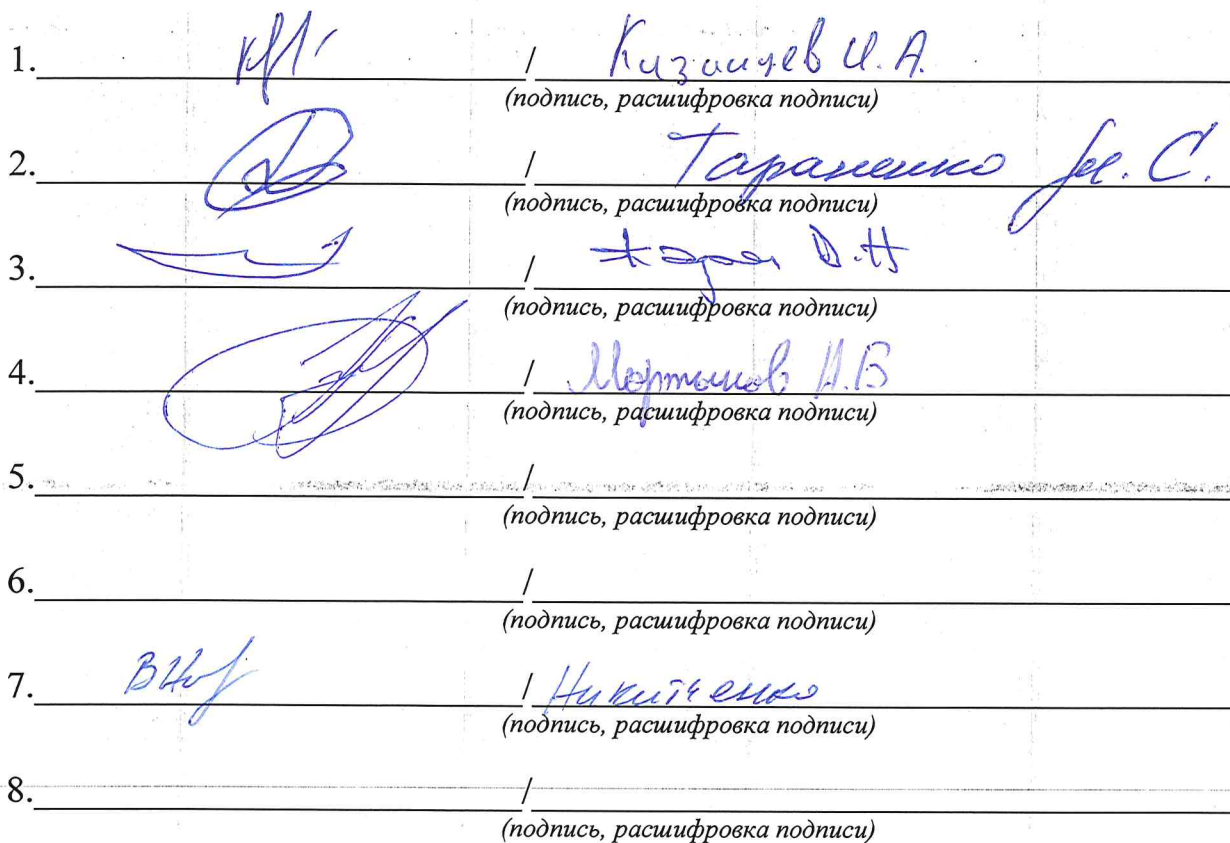 1. / И.А.
(подпись, расшифровка подписи)
2. / Тараненко С.
(подпись, расшифровка подписи)
3. / Д.Н
(подпись, расшифровка подписи)
4. / Мартынов А.В
(подпись, расшифровка подписи)
5. /
(подпись, расшифровка подписи)
6. /
(подпись, расшифровка подписи)
7. / Никитченко
(подпись, расшифровка подписи)
8. /
(подпись, расшифровка подписи)